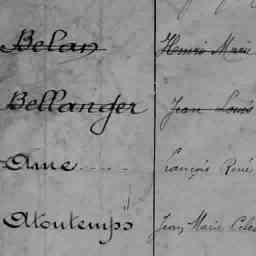 Belan Henri Marie
Bellanger Jean Louis
Ame François René
Atoutemps Jean Marie